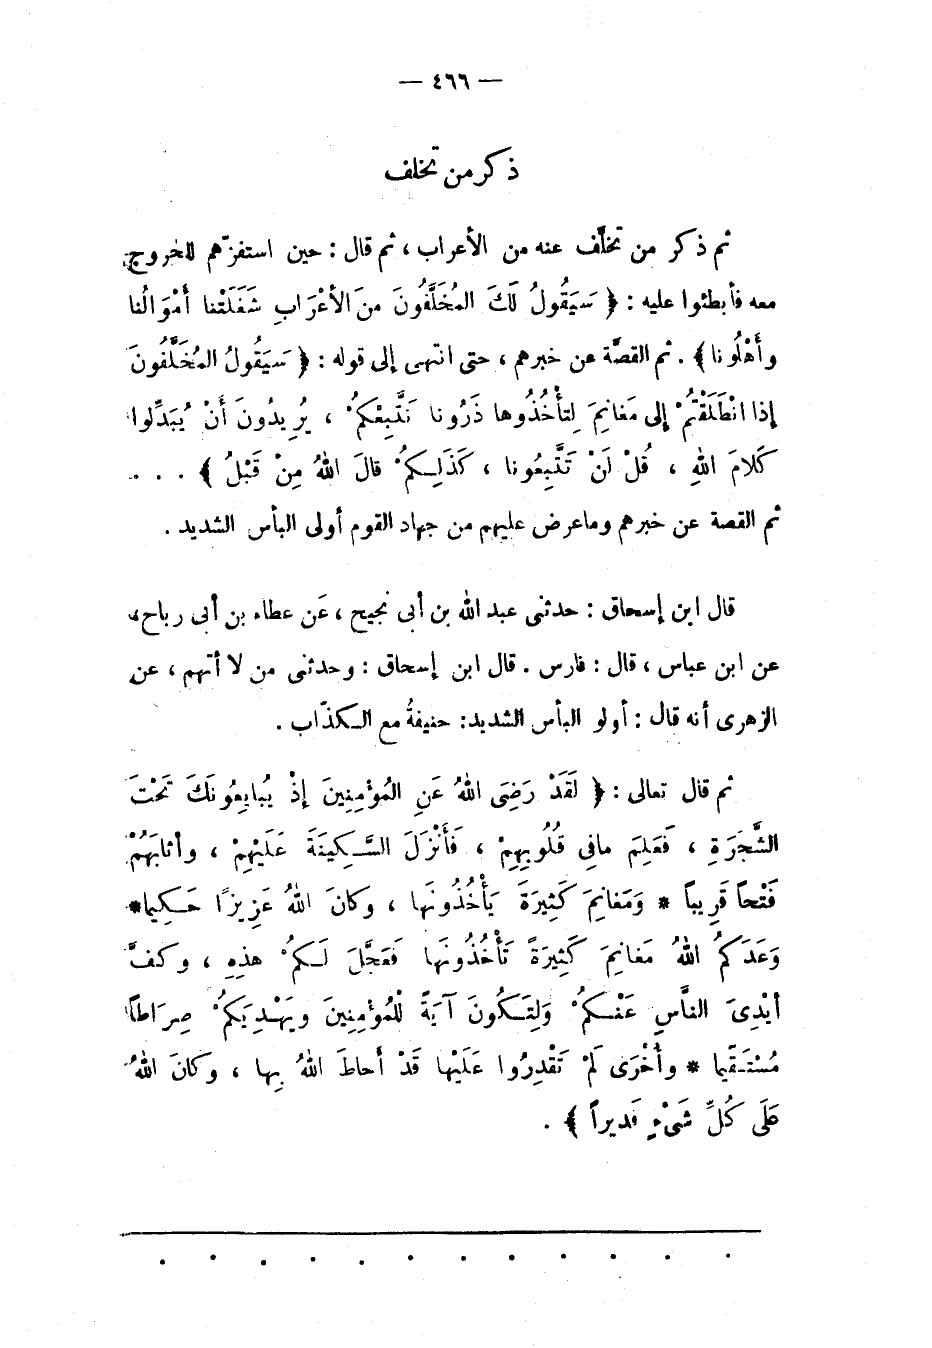 — ٤٦٦ —
ذكر من تخلف
ثم ذكر من تخلَّف عنه من الأعراب ، ثم قال : حين استفزّهم للخروج
معه فأبطئوا عليه : ﴿ سَيَقُولُ لَكَ المُخَلَّفُونَ مِنَ الأَعْرَابِ شَغَلَتْنا أَمْوَالُنا
وأَهْلُونا﴾ . ثم القصَّة عن خبرهم ، حتى انتهى إلى قوله : ﴿ سَيَقُولُ المُخَلَّفُونَ
إذا انْطَلَقْتُمْ إلى مَغانِمَ لِتأْخُذُوها ذَرُونا نَتَّبِعْكُمْ ، يُرِيدُونَ أَنْ يُبَدِّلوا
كَلامَ اللهِ ، قُلْ لَنْ تَتَّبِعُونا ، كَذَلِكُمْ قالَ اللهُ مِنْ قَبْلُ ﴾ . . .
ثم القصة عن خبرهم وماعرض عليهم من جهاد القوم أولى البأس الشديد .
قال ابن إسحاق : حدثنى عبد الله بن أبى نجيح ، عَن عطاء بن أبى رباح ،
عن ابن عباس ، قال : فارس . قال ابن إسحاق : وحدثنى من لا أتهم ، عن
الزهرى أنه قال : أولو البأس الشديد : حنيفةُ مع الكذّاب .
ثم قال تعالى : ﴿ لَقَدْ رَضِىَ اللهُ عَنِ المُؤمِنِينَ إذْ يُبايِعُونَكَ تَحْتَ
الشَّجَرَةِ ، فَعَلِمَ مافِى قُلُوبِهِمْ ، فَأَنْزَلَ السَّكِينَةَ عَلَيْهِمْ ، وأثابَهُمْ
فَتْحاً قَرِيباً * وَمَغانِمَ كَثِيرَةً يَأْخُذُونَها ، وكانَ اللهُ عَزِيزًا حَكِيما*
وَعَدَكُمُ اللهُ مَغانِمَ كَثِيرَةً تَأْخُذُونَها فَعَجَّلَ لَكُمْ هذِهِ ، وكَفَّ
أيْدِىَ النَّاسِ عَنْكُمْ وَلِتَكُونَ آيَةً لِلْمُؤمِنِينَ ويَهْدِيَكُمْ صِرَاطاً
مُسْتَقِيما * وأُخْرَى لَمْ تَقْدِرُوا عَلَيْها قَدْ أحاطَ اللهُ بِها ، وكانَ اللهُ
عَلَى كُلِّ شَىْءٍ قديراً ﴾ .
. . . . . . . . . . . .